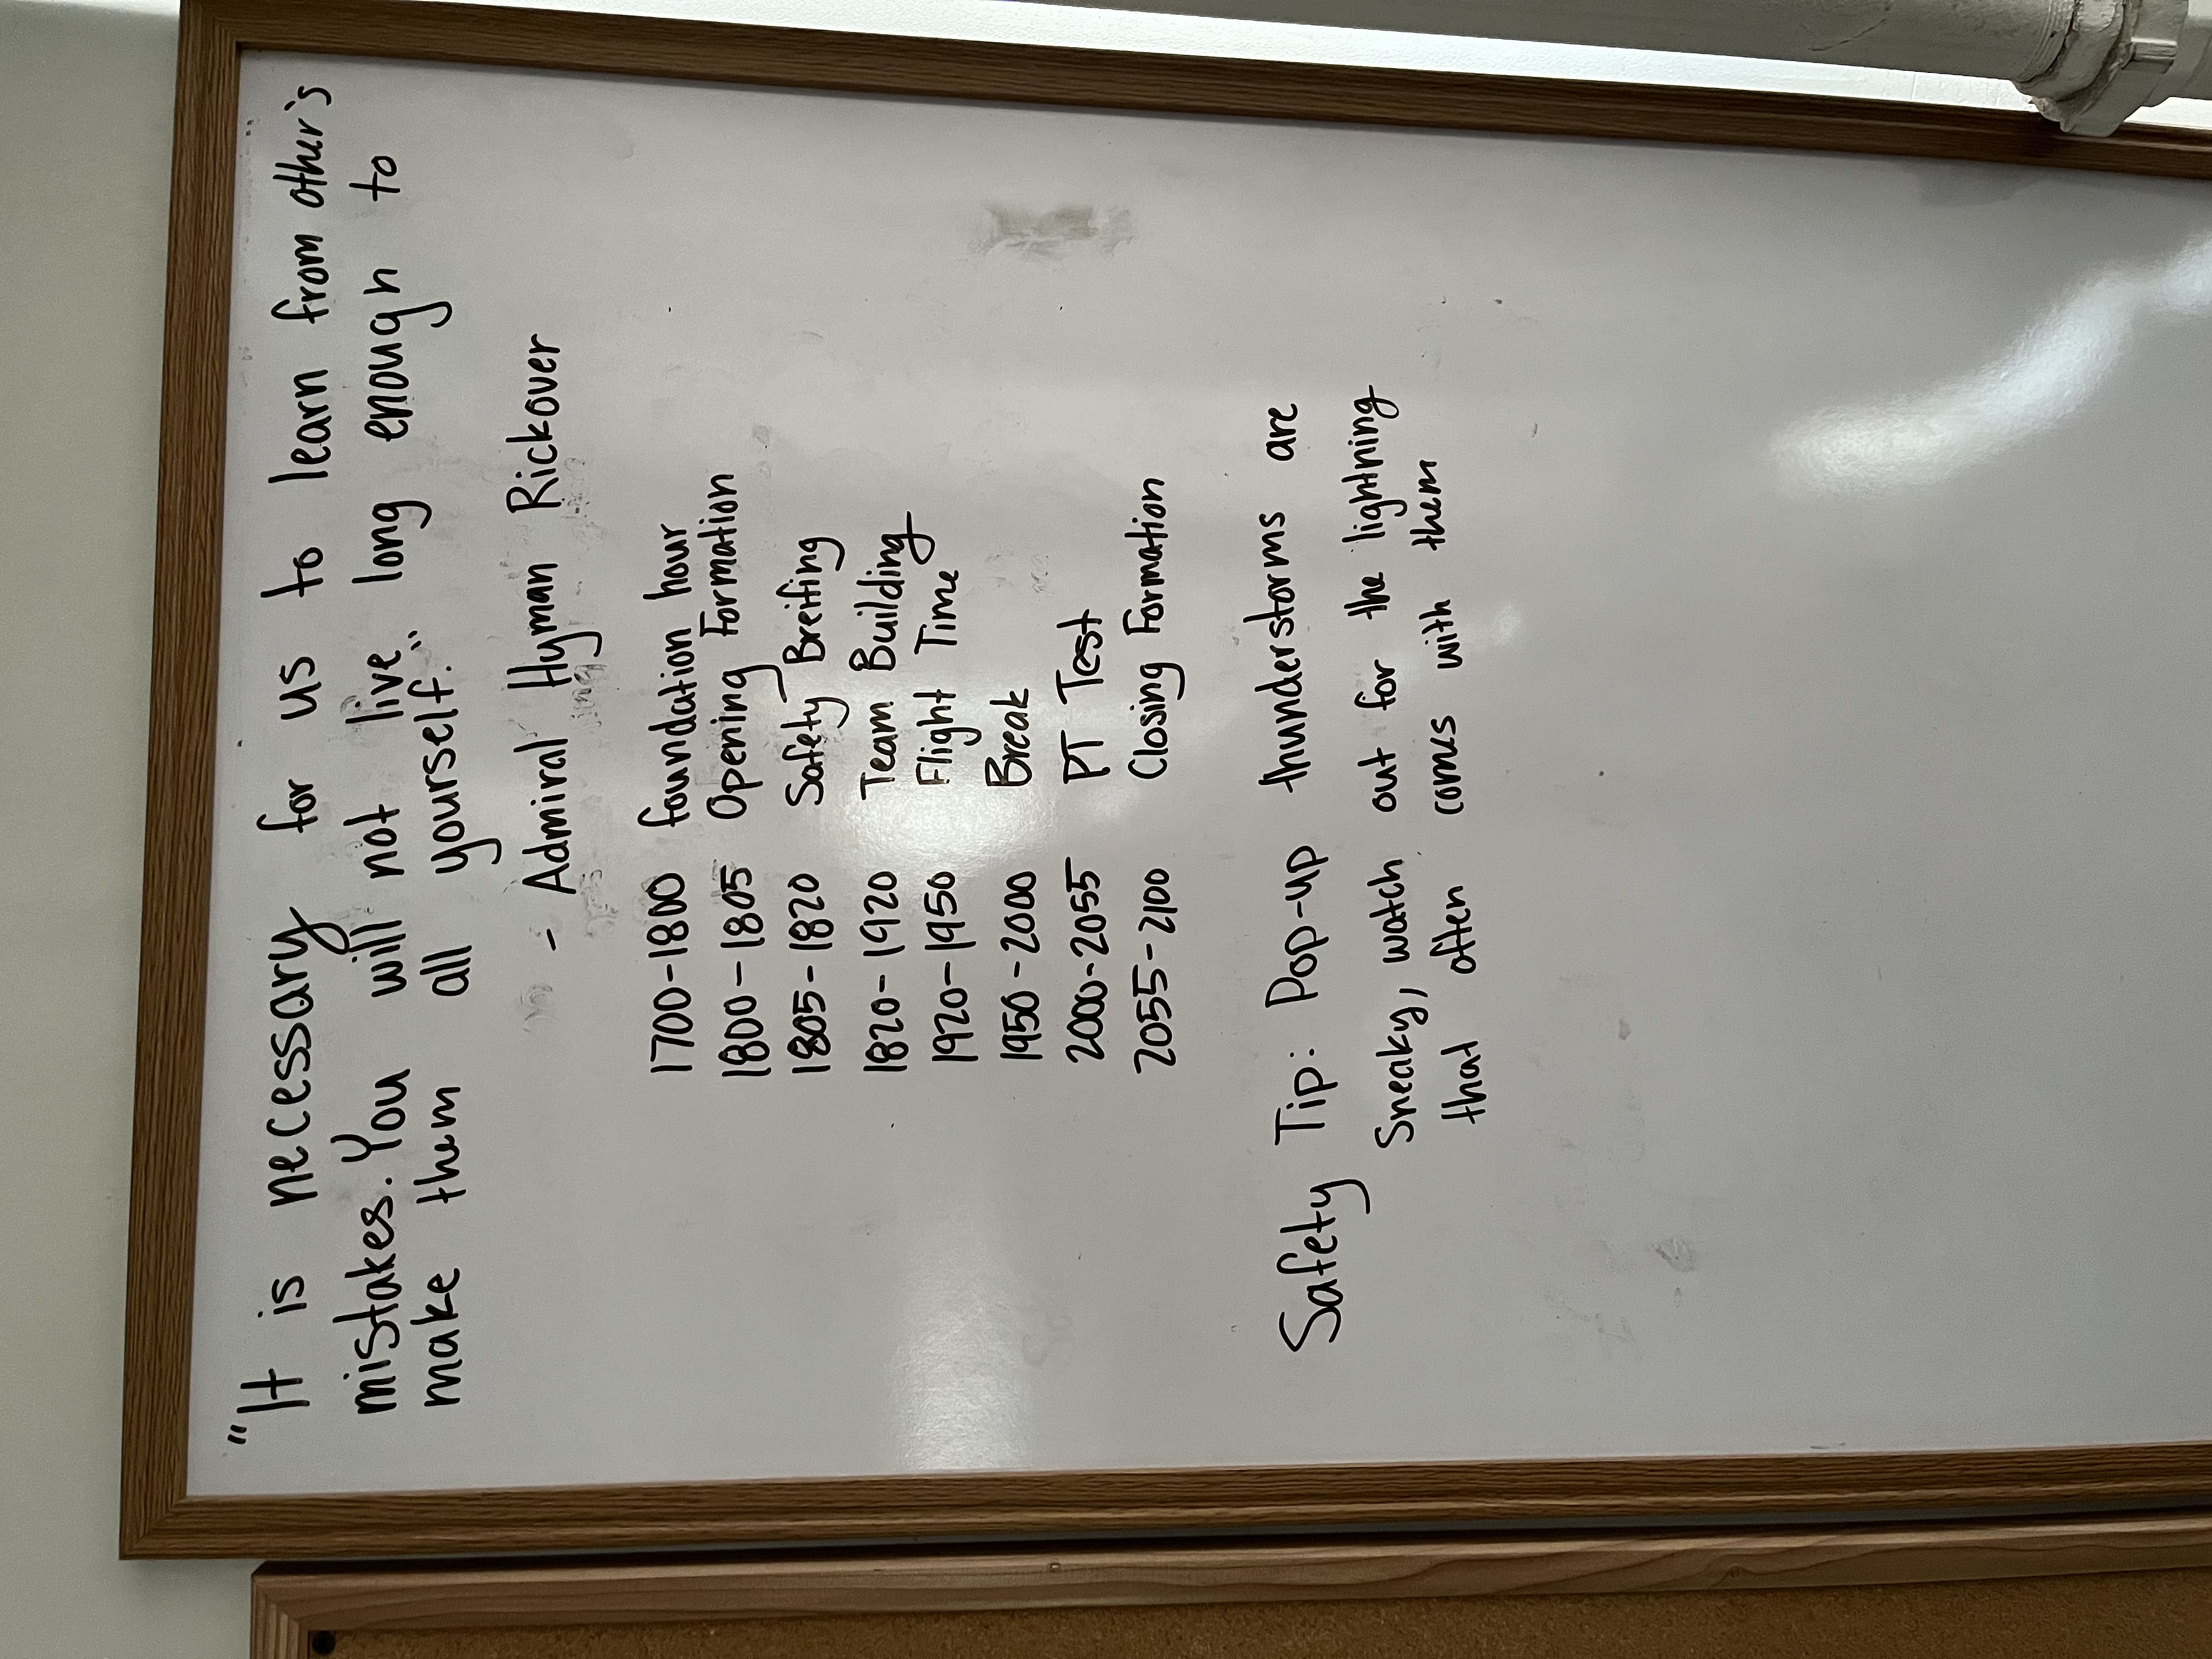 "It is necessary for us to learn from other's
mistakes. You will not live long enough to
make them all yourself."
- Admiral Hyman Rickover
1700-1800 foundation hour
1800-1805 Opening Formation
1805-1820 Safety Breifing
1820-1920 Team Building
1920-1950 Flight Time
1950-2000 Break
2000-2055 PT Test
2055-2100 Closing Formation
Safety Tip: Pop-up thunderstorms are
Sneaky, watch out for the lightning
that often comes with them